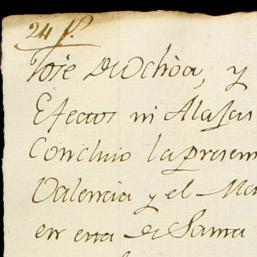 24 f.
Jose de Ochoa, y
Efectos ni Alajas
Concluio la presen
Valencia y el Ma
en esta de Santa